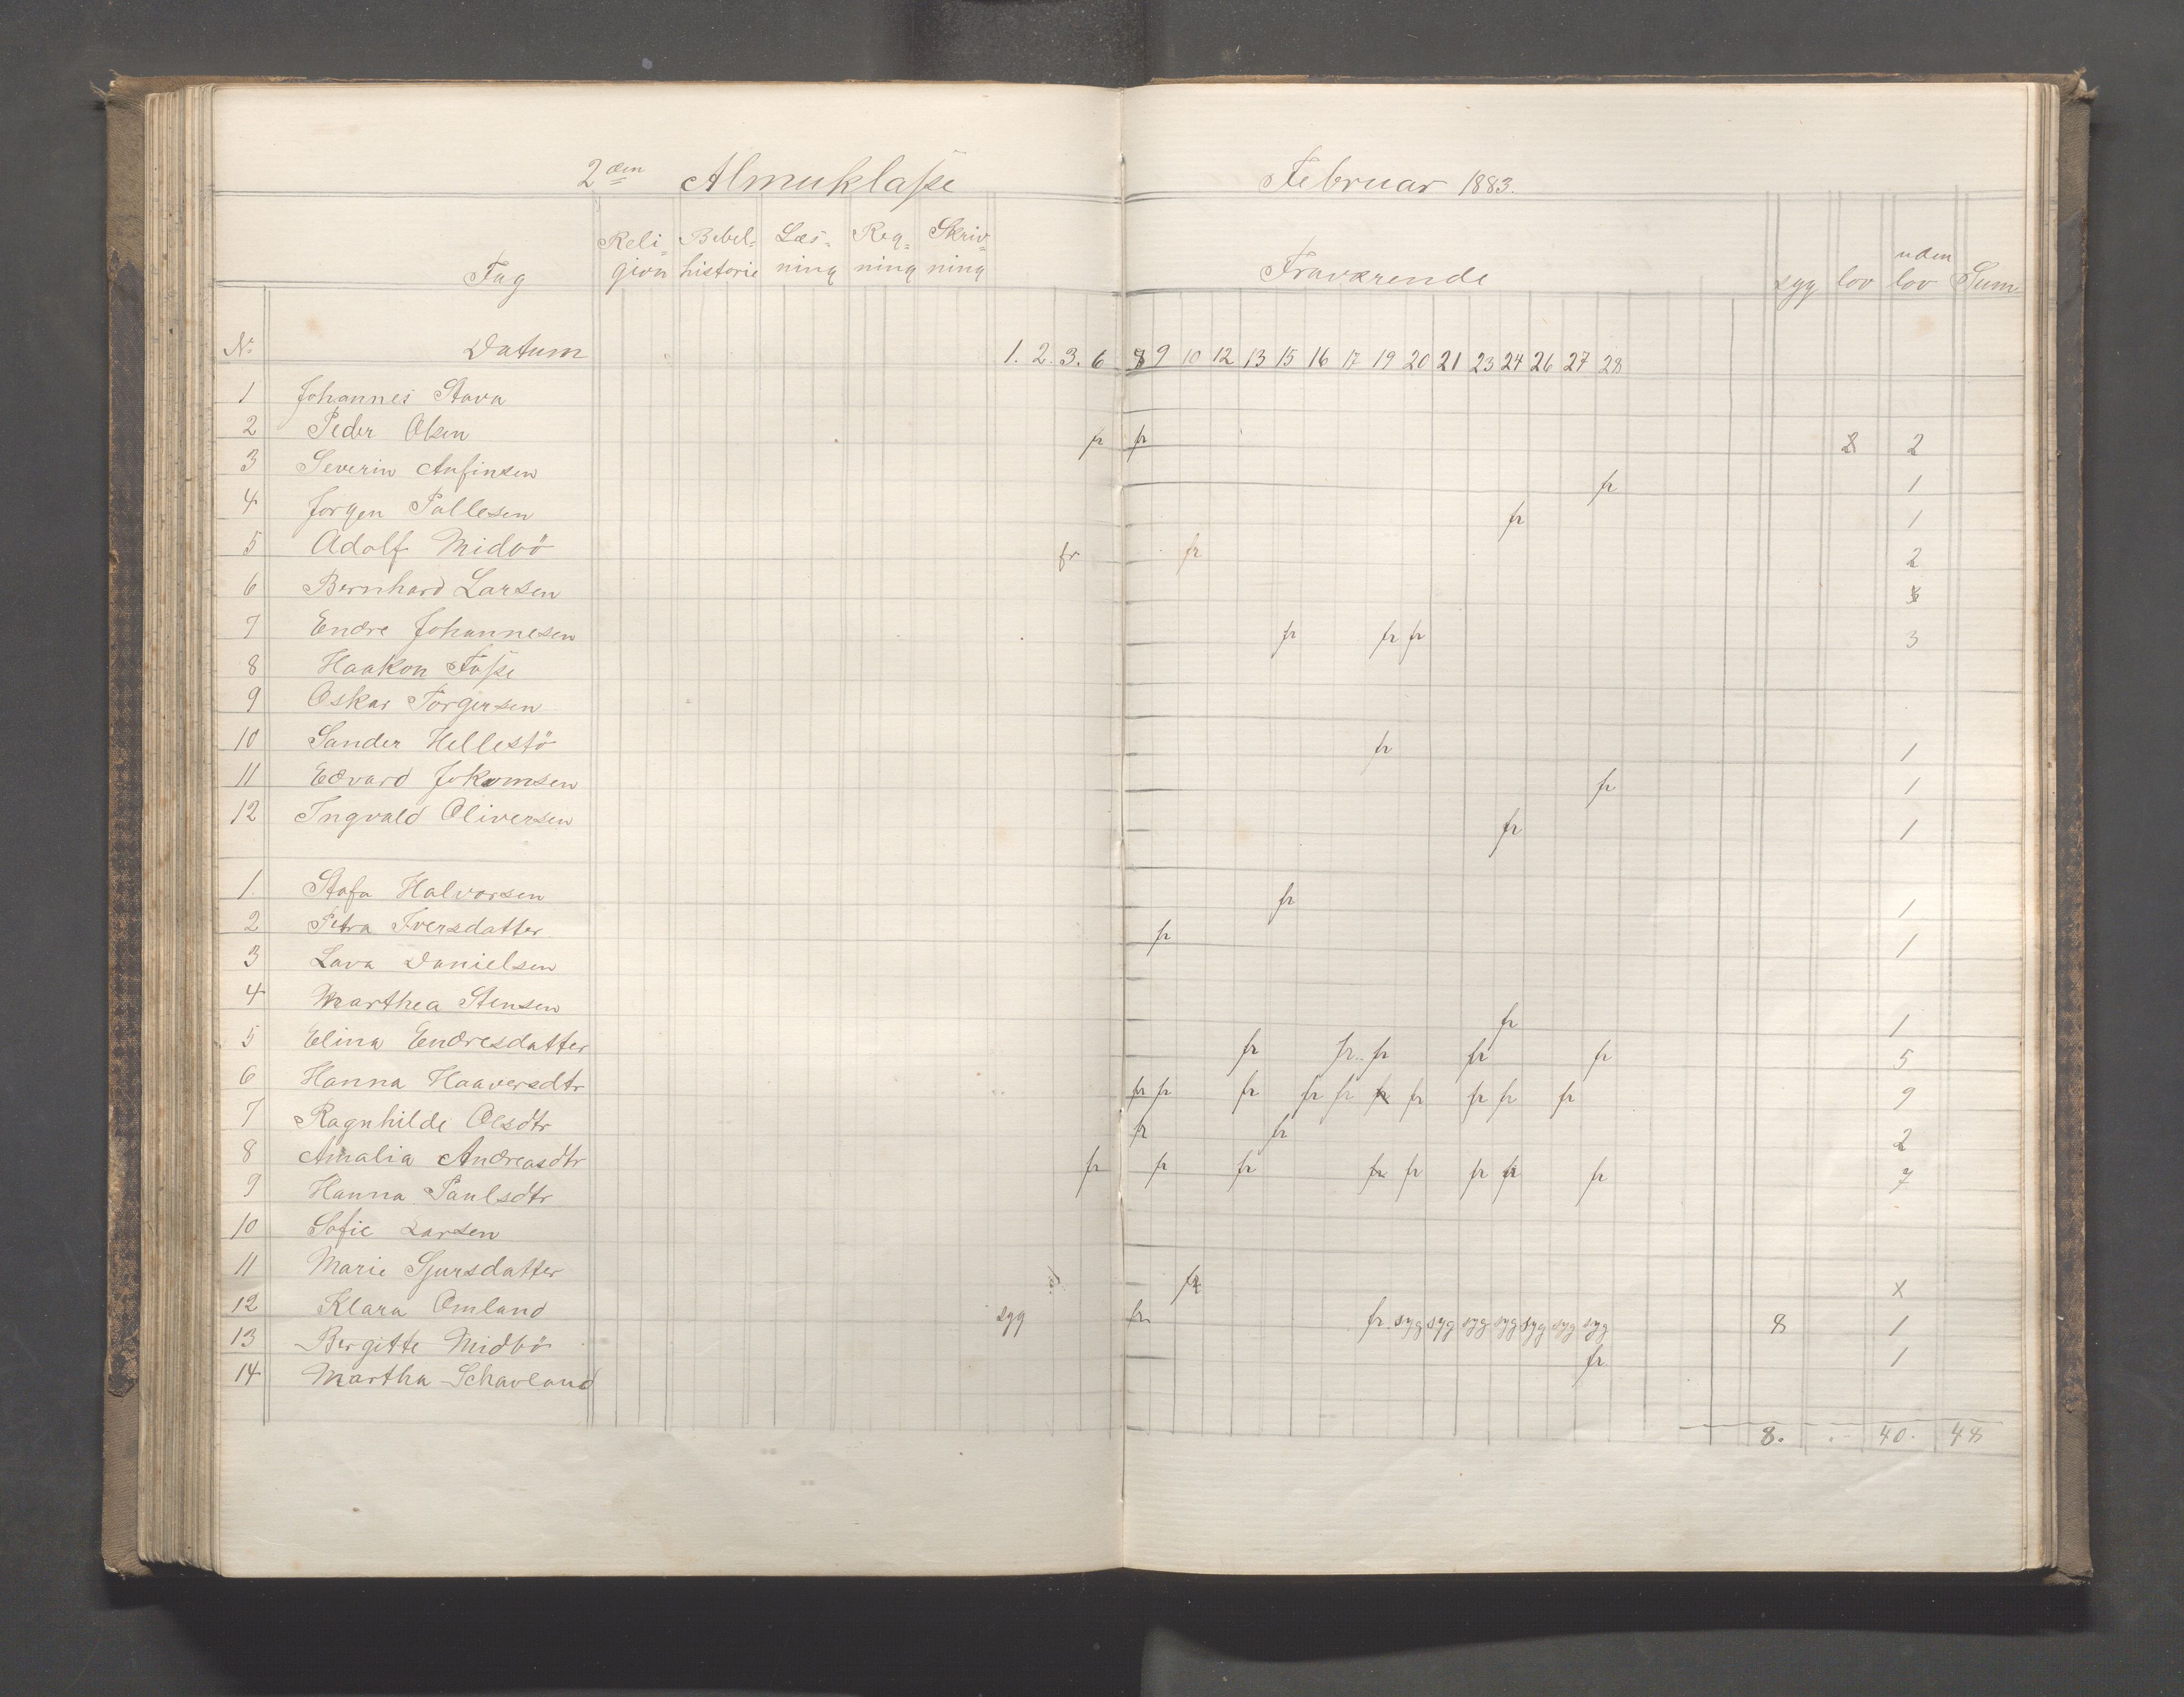 2den Almuklasse Februar 1883.
Fag Religion Bibelhistorie Læsning Regning Skrivning Fraværende syg lov uden lov Sum
No Datum 1. 2. 3. 6 8 9 10 12 13 15 16 17 19 20 21 23 24 26 27 28
1 Johannes Stava
2 Peder Olsen fr fr 2
3 Severin Anfinsen fr 1
4 Jørgen Pallesen fr 1
5 Adolf Midbö fr fr 2
6 Bernhard Larsen
7 Endre Johannesen fr fr fr 3
8 Haakon Fosse
9 Oskar Torgersen
10 Sander Hellestö fr 1
11 Edvard Jokomsen fr 1
12 Ingvald Oliversen fr 1
1 Stafa Halvorsen fr 1
2 Petra Iversdatter fr 1
3 Lava Danielsen
4 Marthea Stensen fr 1
5 Elina Endresdatter fr fr fr fr fr 5
6 Hanna Haaversdtr fr fr fr fr fr fr fr fr fr fr 9
7 Ragnhilde Olsdtr fr fr 2
8 Amalia Andreasdtr fr fr fr fr fr fr fr fr 7
9 Hanna Paulsdtr
10 Sofie Larsen
11 Marie Sjursdatter fr x
12 Klara Omland syg fr fr syg syg syg syg syg syg syg 8 1
13 Bergitte Midbö fr 1
14 Martha Schavland
8. 40. 48